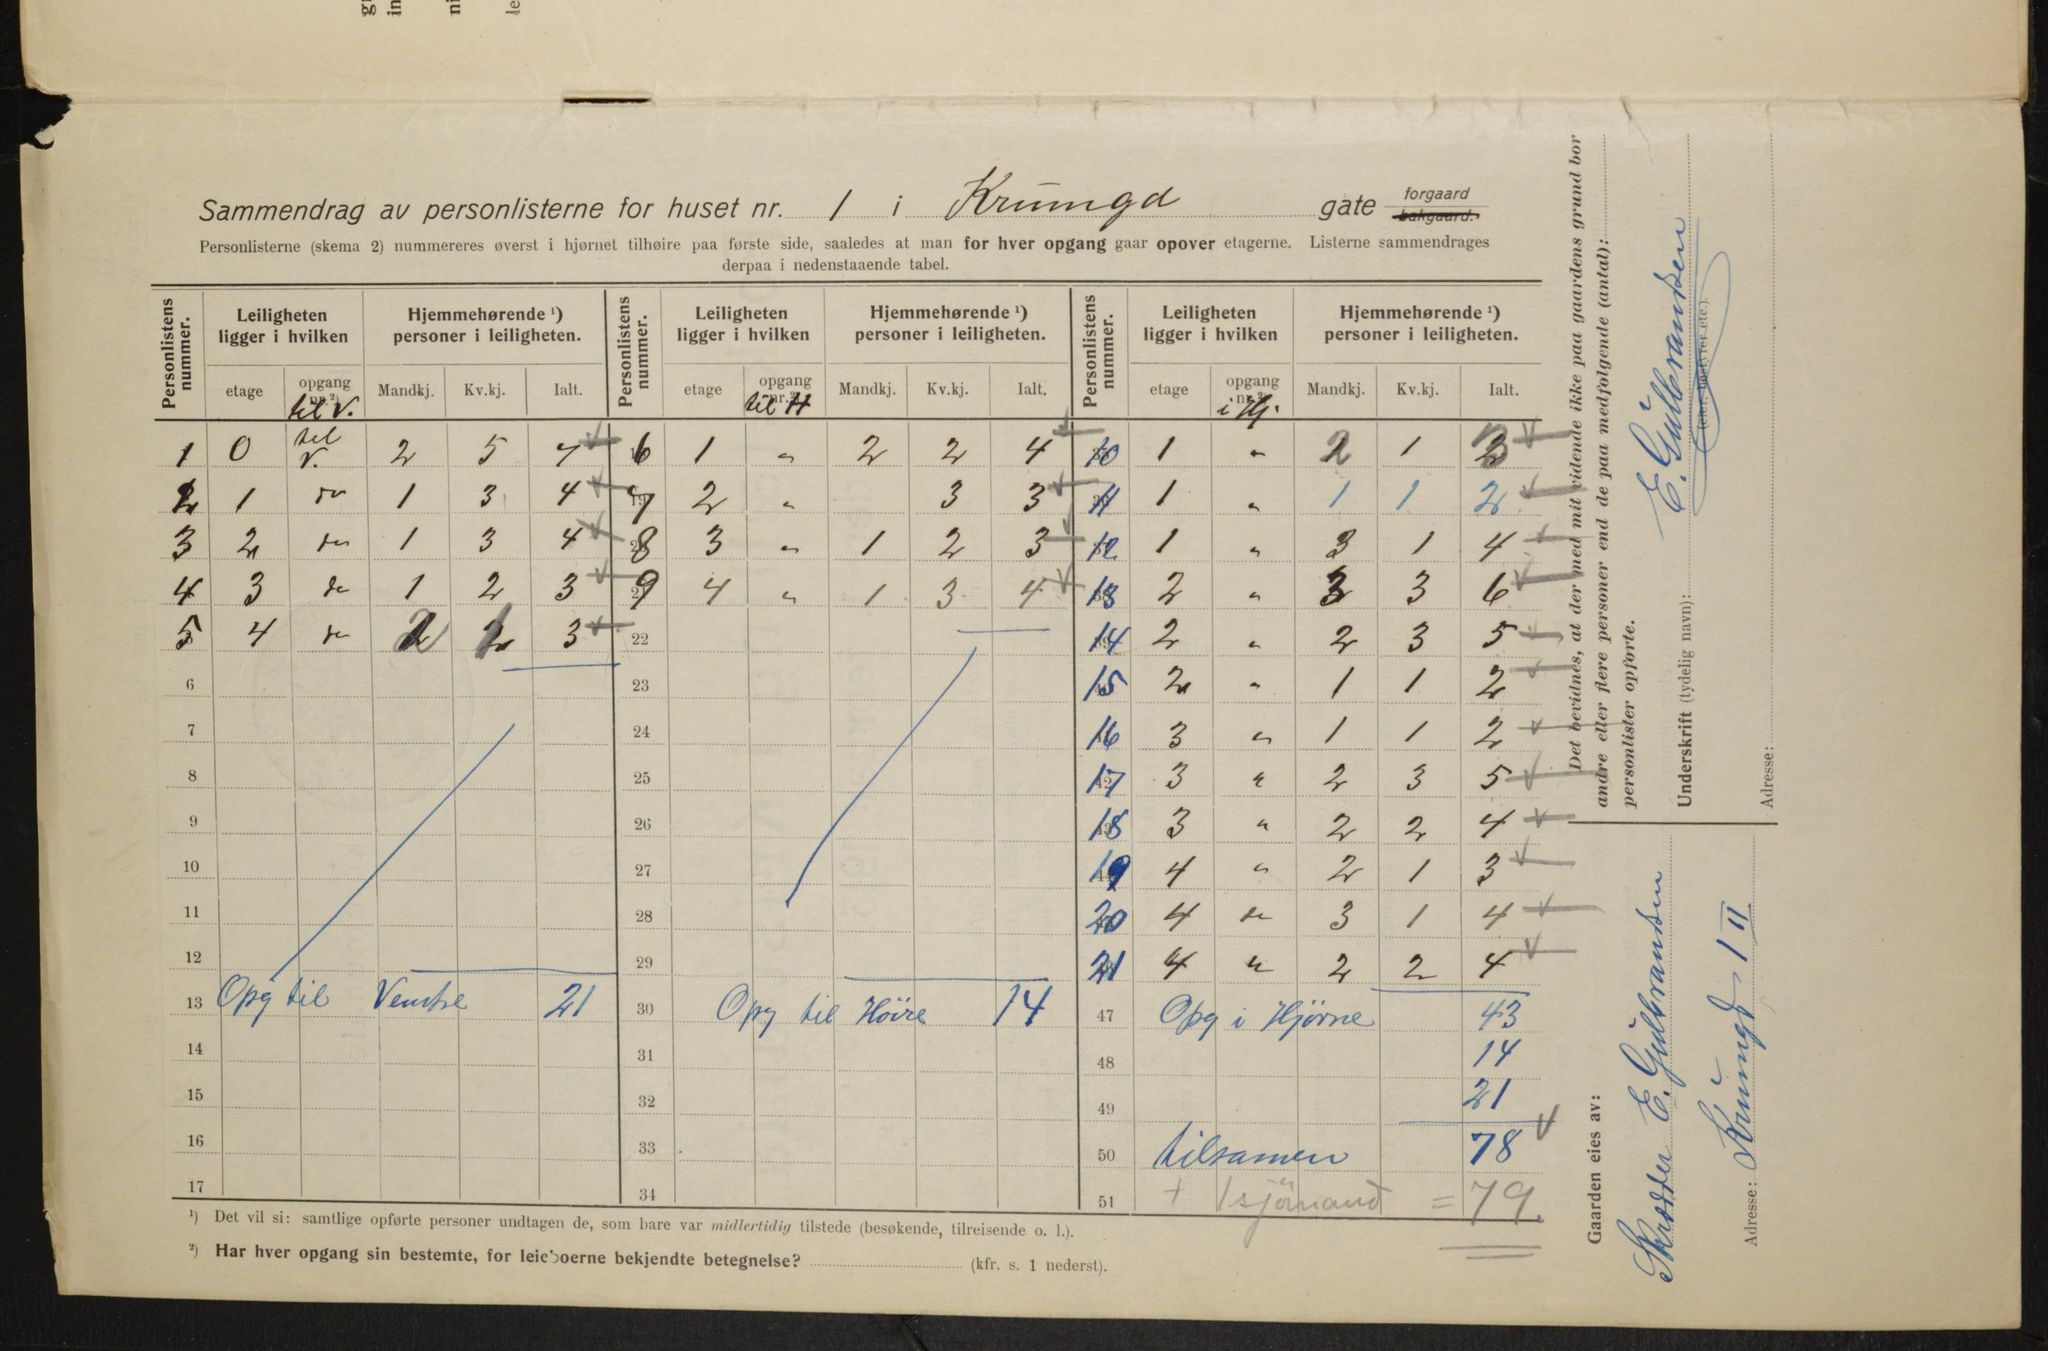 Sammendrag av personlisterne for huset nr. 1 i Krumgd gate forgaard bakgaard.
Personlisterne (skema 2) nummereres øverst i hjørnet tilhøire paa første side, saaledes at man for hver opgang gaar opover etagerne. Listerne sammendrages
derpaa i nedenstaaende tabel.
Personlistens nummer. Leiligheten ligger i hvilken Hjemmehørende ¹) personer i leiligheten. Personlistens nummer. Leiligheten ligger i hvilken Hjemmehørende ¹) personer i leiligheten. Personlistens nummer. Leiligheten ligger i hvilken Hjemmehørende ¹) personer i leiligheten.
etage opgang nr.²) Mandkj. Kv.kj. Ialt. etage opgang nr.²) Mandkj. Kv.kj. Ialt. etage opgang nr.²) Mandkj. Kv.kj. Ialt.
til V. til H i Hj.
1 0 til V. 2 5 7 6 1 " 2 2 4 10 1 " 2 1 3
2 1 do 1 3 4 7 2 " 3 3 11 1 " 1 1 2
3 2 do 1 3 4 8 3 " 1 2 3 12 1 " 3 1 4
4 3 do 1 2 3 9 4 " 1 3 4 13 2 " 3 3 6
5 4 do 2 1 3 22 14 2 " 2 3 5
6 23 15 2 " 1 1 2
7 24 16 3 " 1 1 2
8 25 17 3 " 2 3 5
9 26 18 3 " 2 2 4
10 27 19 4 " 2 1 3
11 28 20 4 do 3 1 4
12 29 21 4 " 2 2 4
13 Opg til Venstre 21 30 Opg til Høire 14 47 Opg i Hjørne 43
14 31 48 14
15 32 49 21
16 33 50 tilsamen 78
17 34 51 + 1 sjömand = 79.
¹) Det vil si: samtlige opførte personer undtagen de, som bare var midlertidig tilstede (besøkende, tilreisende o. l.).
²) Har hver opgang sin bestemte, for leieboerne bekjendte betegnelse? (kfr. s. 1 nederst).
Det bevidnes, at der med mit vidende ikke paa gaardens grund bor
andre eller flere personer end de paa medfølgende (antal):
personlister opførte.
Underskrift (tydelig navn): E. Gulbrandsen
(eier, bestyrer etc.)
Adresse:
Gaarden eies av:
Skrædder E. Gulbrandsen
Adresse: Krumgd 1 II